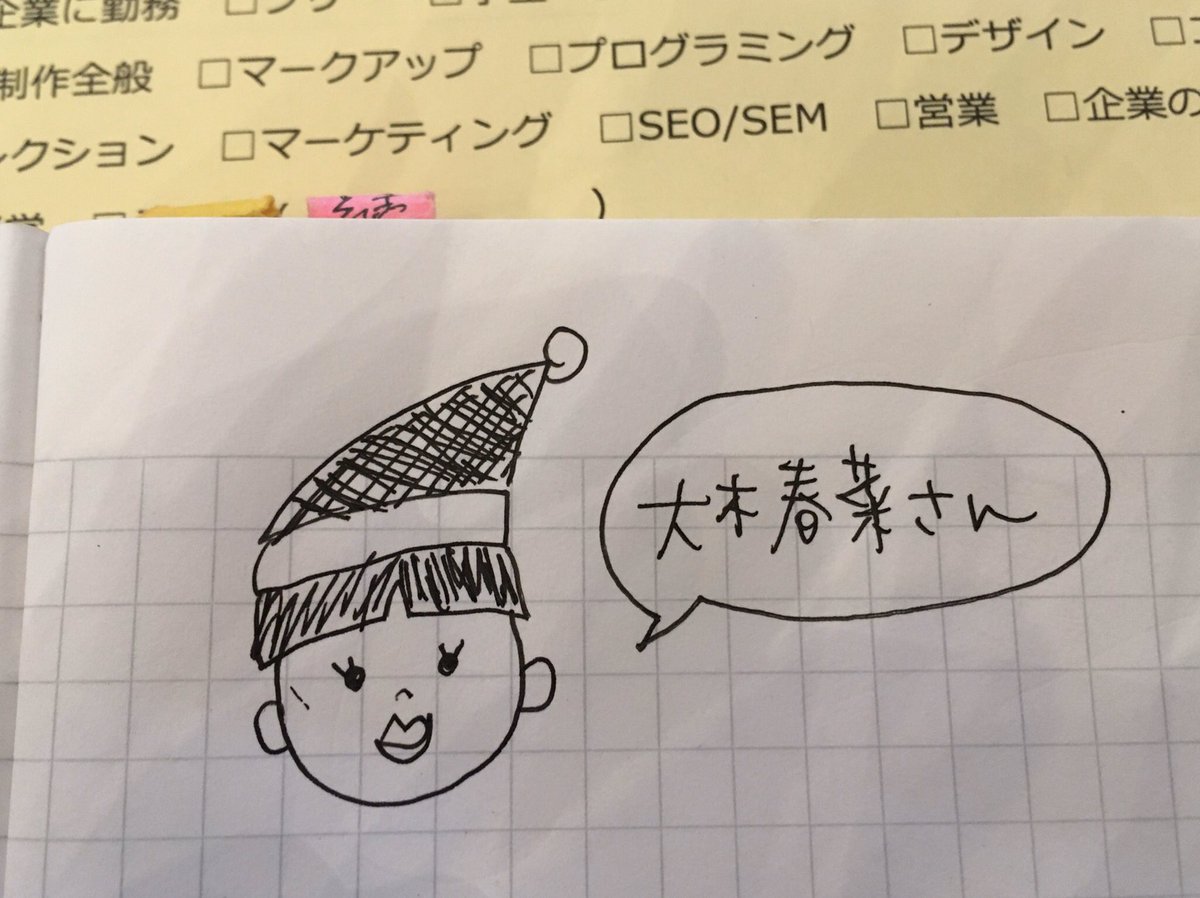 企業に勤務
制作全般 □マークアップ □プログラミング □デザイン □
レクション □マーケティング □SEO/SEM □営業 □企業の
)
大木春菜さん